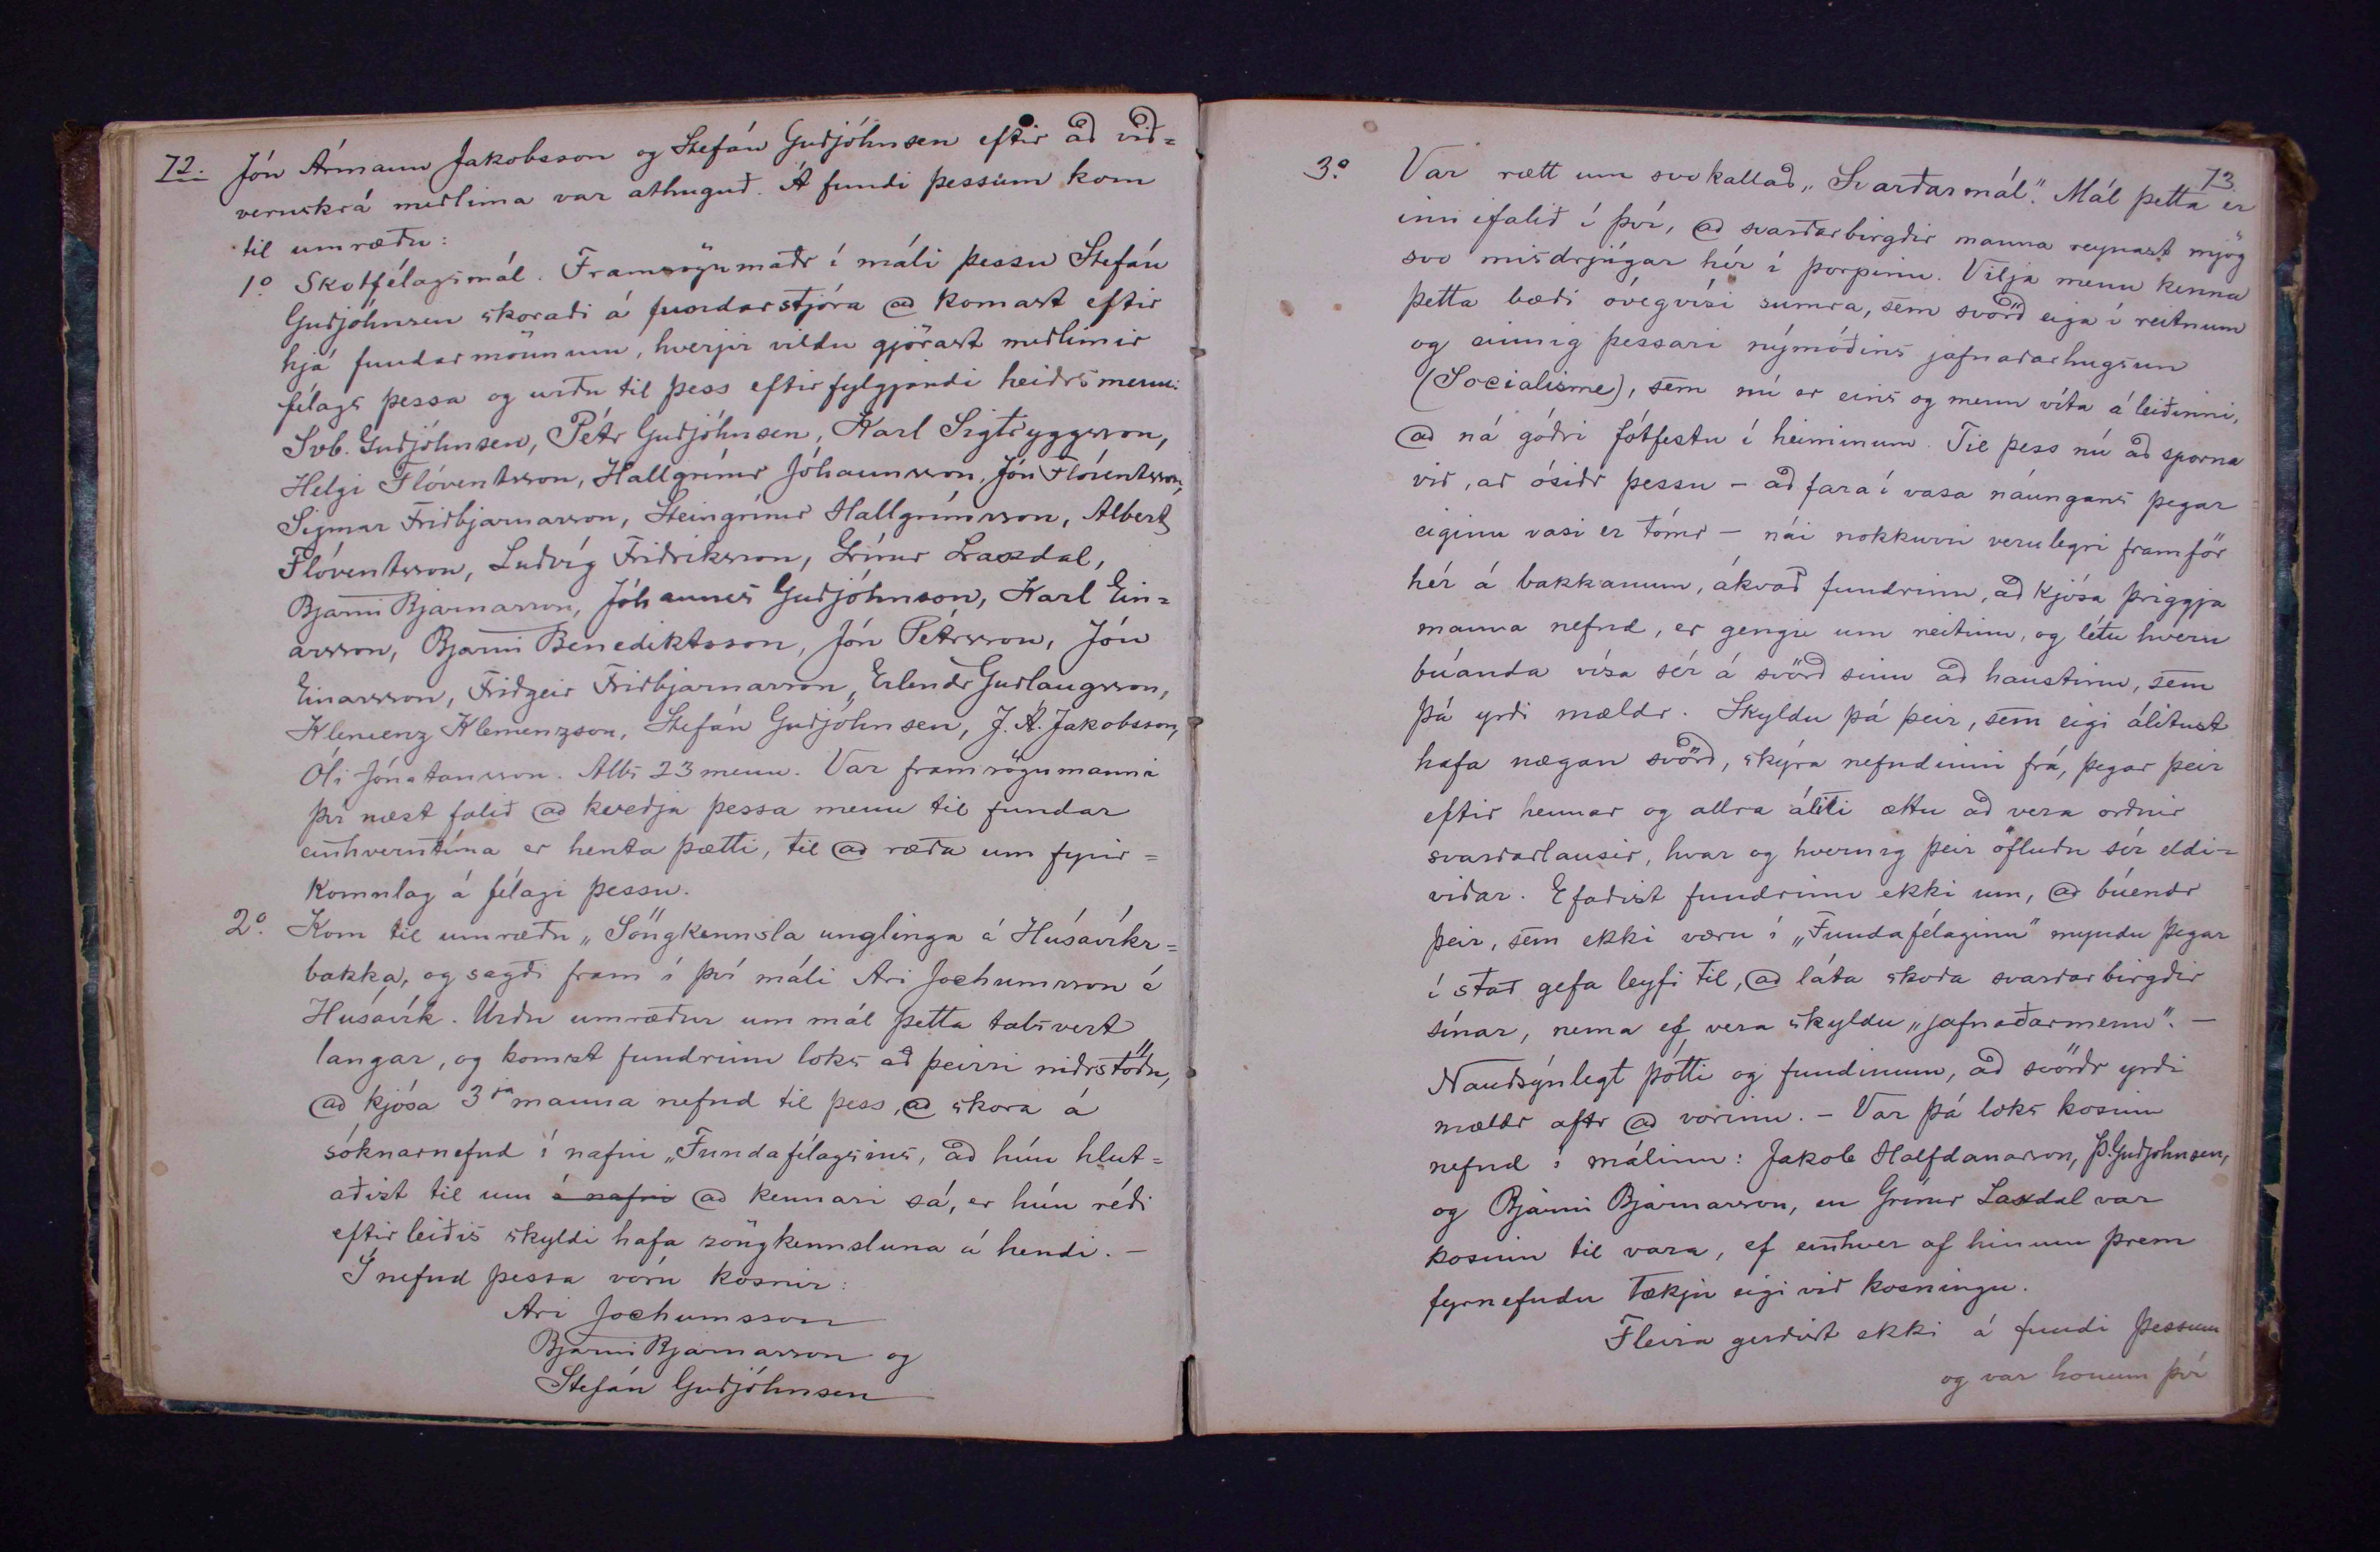 72.
Jón Ármann Jakobsson og Stefán Guðjóhnsen eftir að við=
veruskrá meðlima var athuguð. Á fundi þessum kom
til umræðu:
1º Skotfélagsmál. Framsögumaðr í máli þessu Stefán
Guðjóhnsen skoraði á fundarstjóra @ komast eftir
hjá fundarmönnum, hverjir vildu gjörast meðlimir
félags þessa og urðu til þess eftirfylgjandi heiðrsmenn:
Svb. Guðjóhnsen, Pétr Guðjóhnsen, Karl Sigtryggsson,
Helgi Flóventsson, Hallgrímr Jóhannsson, Jón Flóventsson,
Sigmar Friðbjarnarson, Steingrímr Hallgrímsson, Albert
Flóventsson, Luðvíg Friðriksson, Grímr Laxdal,
Bjarni Bjarnarson, Jóhannes Guðjóhnson, Karl Ein=
arsson, Bjarni Benediktsson, Jón Pétrsson, Jón
Einarsson, Friðgeir Friðbjarnarson, Erlendr Guðlaugsson,
Klemenz Klemenzson, Stefán Guðjóhnsen, J. Á. Jakobsson,
Óli Jónatansson. Alls 23 menn. Var framsögumanni
því næst falið @ kveðja þessa menn til fundar
einhverntíma er henta þætti, til @ ræða um fyrir=
komulag á félagi þessu.
2º. Kom til umræðu „Söngkennsla unglinga á Húsavíkr=
bakka, og sagði fram í því máli Ari Jochumsson á
Húsavík. Urðu umræður um mál þetta talsvert
langar, og komst fundrinn loks að þeirri niðrstöðu,
@ kjósa 3ja manna nefnd til þess, @ skora á
sóknarnefnd í nafni „Fundafélagsins, að hún hlut=
aðist til um á nafni @ kennari sá, er hún réði
eftirleiðis skyldi hafa söngkennsluna á hendi. –
Í nefnd þessa vóru kosnir:
Ari Jochumsson
Bjarni Bjarnarson og
Stefán Guðjóhnsen
73
3º. Var rætt um svokallað „Svarðarmál". Mál þetta er
inni ifalið í því, @ svarðarbirgðir manna reynast mjög
svo misdrjúgar hér í þorpinu. Vilja menn kenna
þetta bæði óvegvísi sumra, sem svörð eiga í reitnum
og einnig þessari nýmóðins jafnaðarhugsun
(Socialisme), sem nú er eins og menn vita á leiðinni,
@ ná góðri fótfestu í heiminum. Til þess nú að sporna
við, að ósiðr þessu – að fara í vasa náungans þegar
eiginn vasi er tómr – nái nokkurri verulegri framför
hér á bakkanum, ákvað fundrinn, að kjósa þriggja
manna nefnd, er gengju um reitinn, og létu hvern
búanda vísa sér á svörð sinn að haustinu, sem
þá yrði mældr. Skyldu þá þeir, sem eigi álitust
hafa nægan svörð, skýra nefndinni frá, þegar þeir
eftir hennar og allra áliti ættu að vera orðnir
svarðarlausir, hvar og hvernig þeir öfluðu sér eldi=
viðar. Efaðist fundrinn ekki um, @ búendr
þeir, sem ekki væru í „Fundafélaginu" myndu þegar
í stað gefa leyfi til, @ láta skoða svarðarbirgðir
sínar, nema ef vera skyldu „jafnaðarmenn". –
Nauðsýnlegt þótti og fundinum, að svörðr yrði
mældr aftr @ vorinu. – Var þá loks kosin
nefnd í málinu: Jakob Halfdanarson, Þ. Guðjohnsen,
og Bjarni Bjarnarson, en Grímr Laxdal var
kosinn til vara, ef einhver af hinum þrem
fyrnefndu tækju eigi við kosningu.
Fleira gerðist ekki á fundi þessum
og var honum því